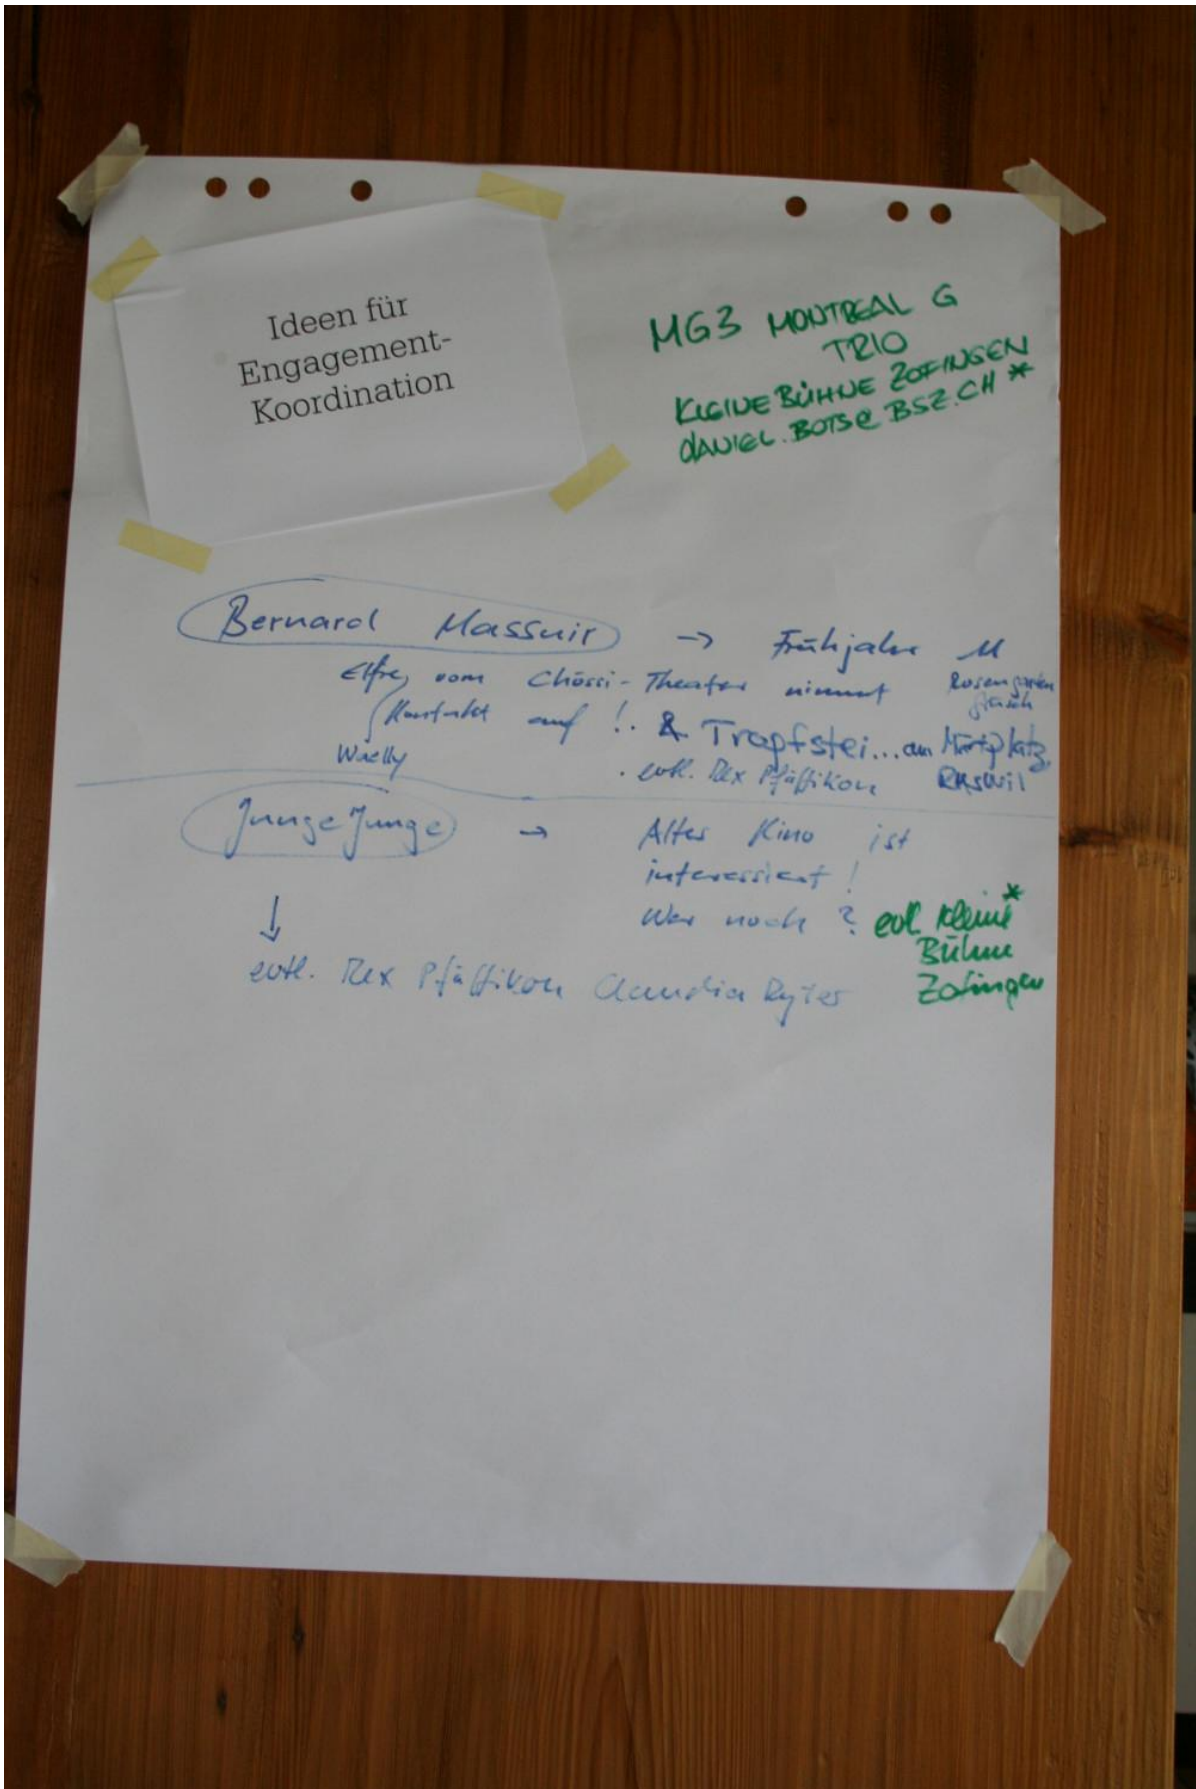 Ideen für
Engagement-
Koordination
MG3 MONTREAL G
TRIO
KLEINE BÜHNE ZOFINGEN
DANIEL.BOTS@BSZ.CH *
Bernard Massuir → Frühjahr 11
vom Chössi-Theater nimmt Rosengarten
Kontakt auf !. & Tropfstei... am Märtplatz
. evtl. Rex Pfäffikon
Junge Junge → Altes Kino ist
interessiert !
Wer noch ? evtl. Kleine *
Bühne
Zofingen
↓
evtl. Rex Pfäffikon Claudia Ryter